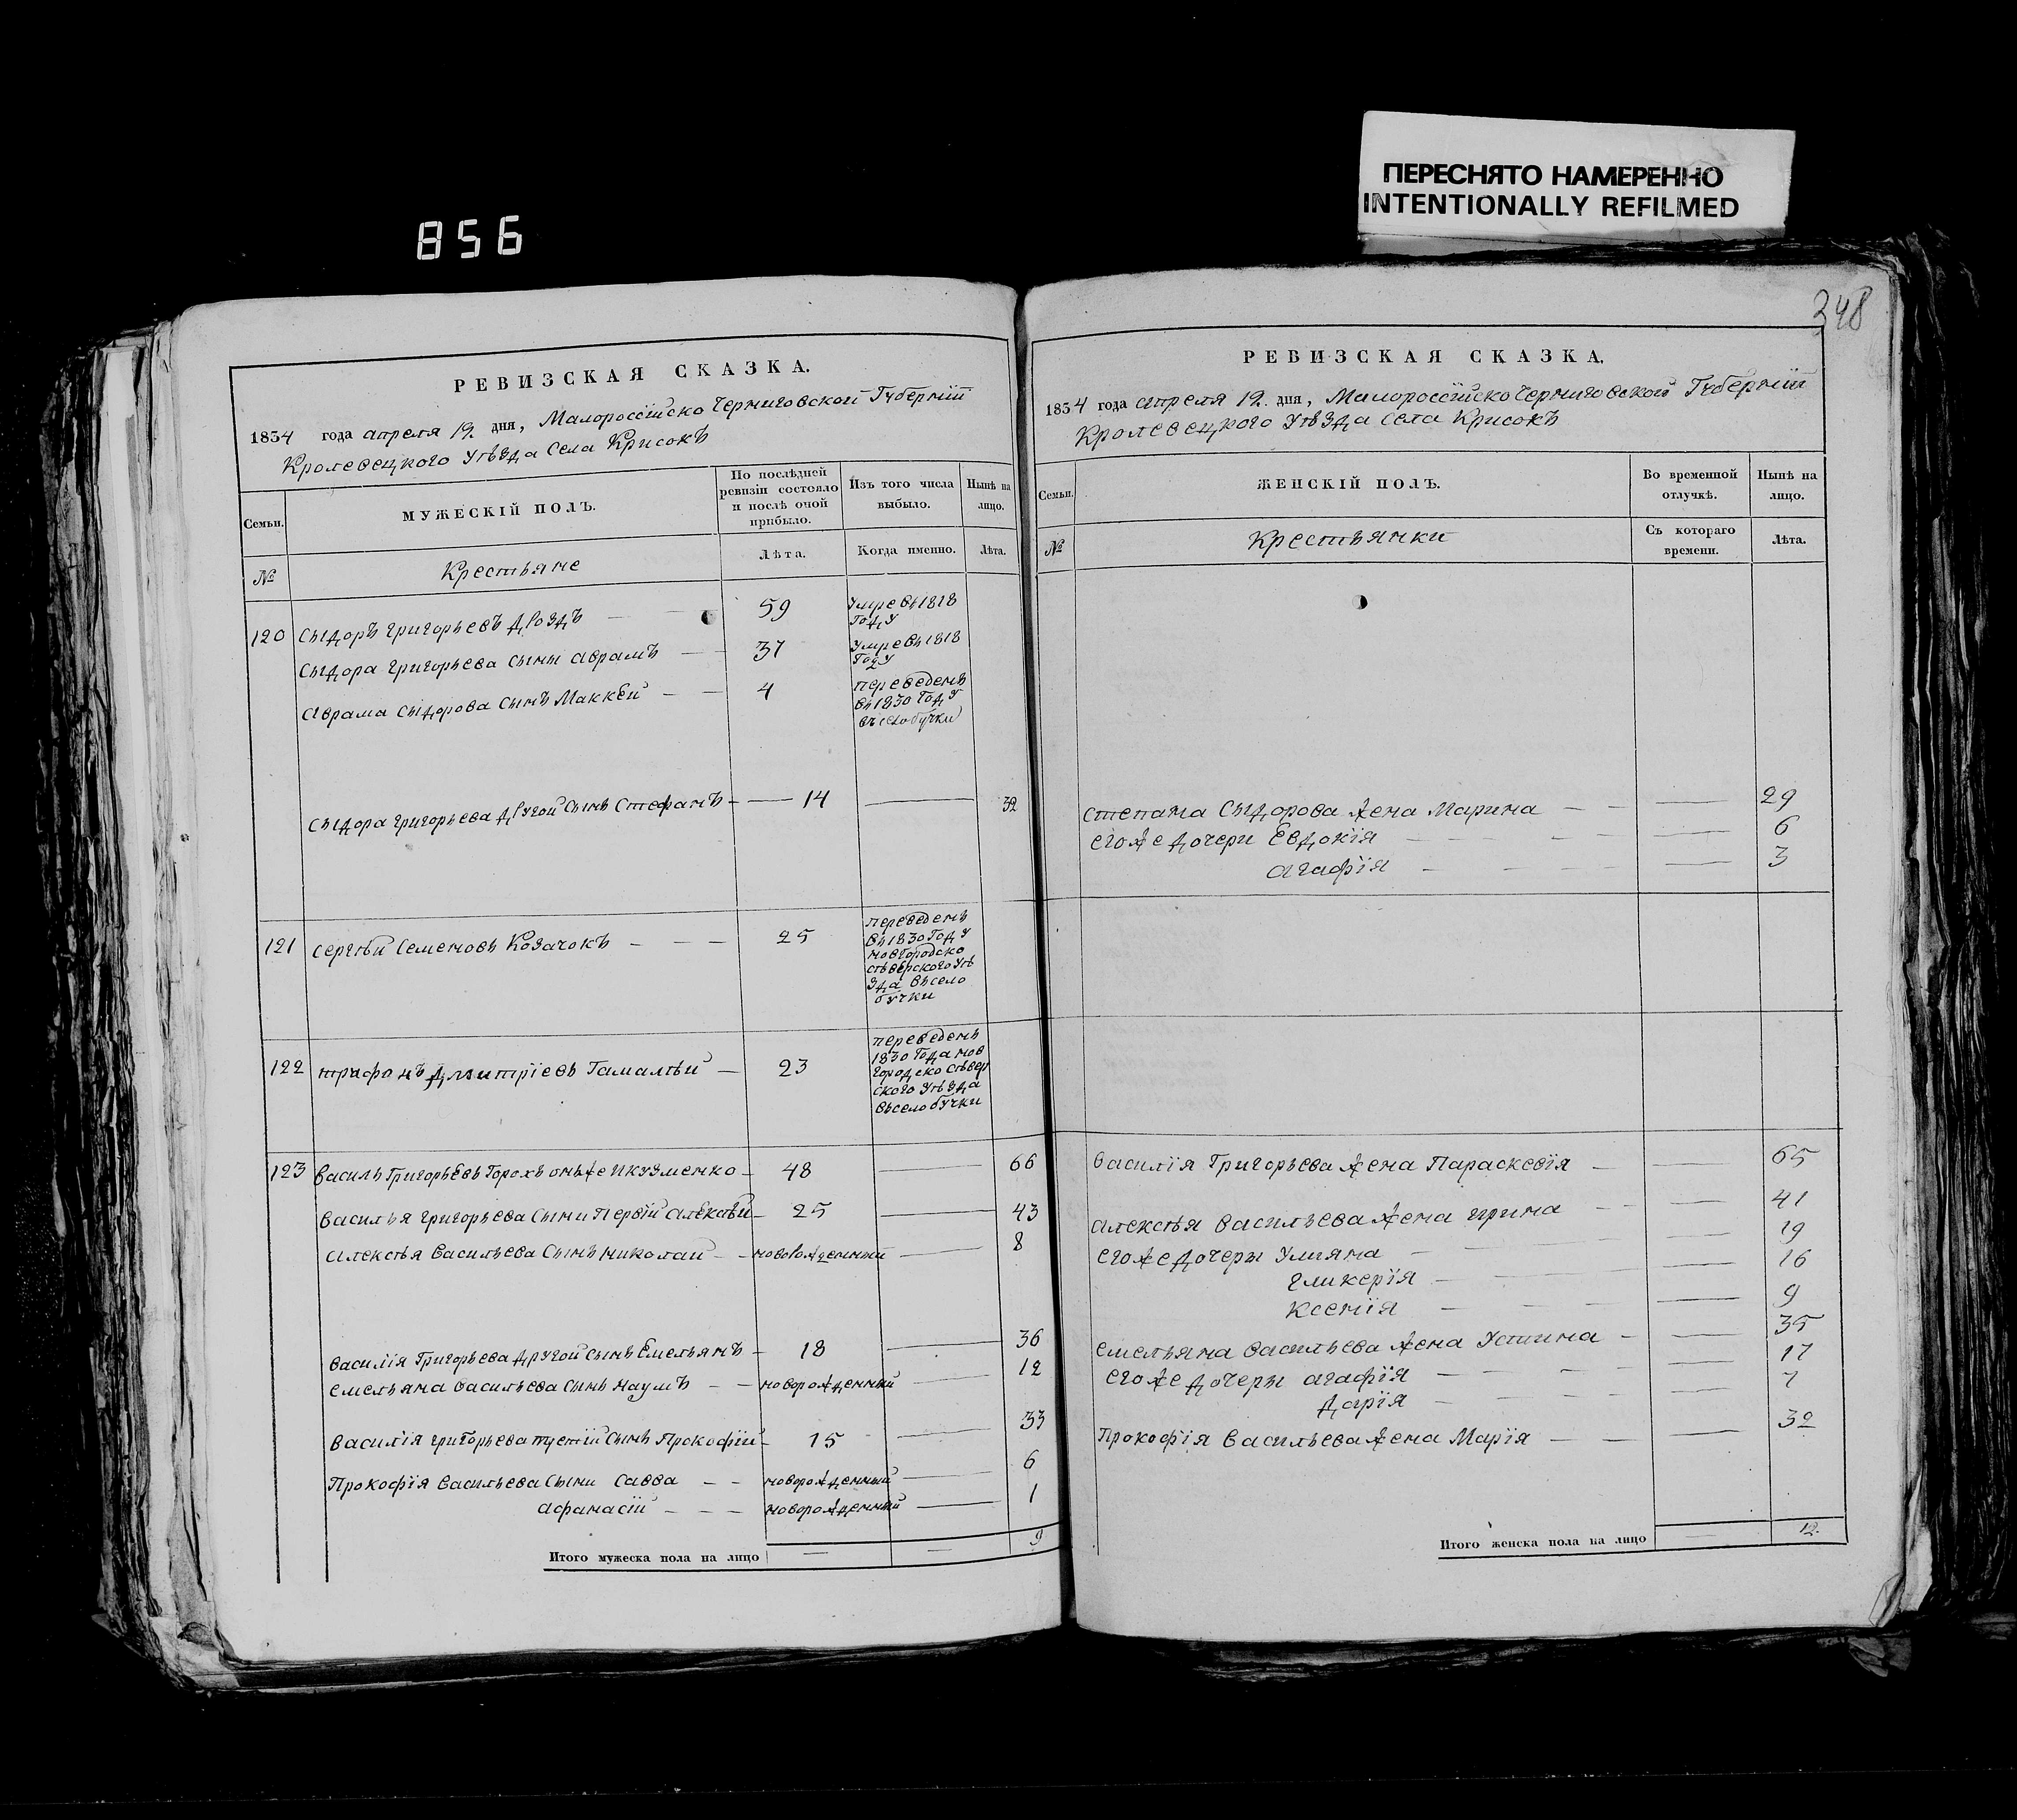 ПЕРЕСНЯТО НАМЕРЕННО
INTENTIONALLY REFILMED
856
348
РЕВИЗСКАЯ СКАЗКА.
1834 года апреля 12 дня, Малороссїйско Черниговской Губернїй
Кролевецкого Уѣзда Села Крисокъ
Семьи. МУЖЕСКІЙ ПОЛЪ. По послѣдней ревизіи состояло и послѣ оной прибыло. Изъ того числа выбыло. Нынѣ на лицо.
№ Крестьяне Лѣта. Когда именно. Лѣта.
120 Сыдоръ Григорьевъ Дроздъ 59 Умре въ 1818 Году
Сыдора Григорьева Сыны Аврамъ 37 Умре въ 1818 Году
Аврама Сыдорова Сынъ Маккей 4 переведенъ въ 1830 Году въ село бучки
Сыдора Григорьева Другой Сынъ Стефанъ 14 32
121 Сергѣй Семеновъ Козачокъ 25 переведенъ въ 1830 Году новгородско сѣверского Уѣзда въ село бучки
122 трифонъ Дмитрїевъ Гамалѣй 23 переведенъ 1830 Года новгородско сѣверского Уѣзда въ село бучки
123 Василь Григорьевъ Горохъ онъ же и Кузменко 48 66
Василья Григорьева Сыни Первїй Алексѣй 25 43
Алексѣя Васильева Сынъ николай новорожденный 8
Василїя Григорьева Другой Сынъ Емельянъ 18 36
Емельяна Васильева Сынъ Наумъ новорожденный 12
Василїя Григорьева третїй Сынъ Прокофїй 15 33
Прокофїя Васильева Сыни Савва новорожденный 6
Афанасїй новорожденный 1
Итого мужеска пола на лицо 9
РЕВИЗСКАЯ СКАЗКА.
1834 года апреля 12 дня, Малороссїйско Черниговской Губернїй
Кролевецкого Уѣзда Села Крисокъ
Семьи. ЖЕНСКІЙ ПОЛЪ. Во временной отлучкѣ. Нынѣ на лицо.
№ Крестьянки Съ котораго времени. Лѣта.
Степана Сыдорова Жена Марина 29
Его же дочери Евдокїя 6
Агафїя 3
Василїя Григорьева Жена Параскевїя 65
Алексѣя Васильева Жена Ирина 41
Его же дочеры Улияна 19
Гликерїя 16
Ксенїя 9
Емельяна Васильева Жена Устина 35
Его же дочеры Агафїя 17
Дарїя 7
Прокофїя Васильева Жена Марїя 32
Итого женска пола на лицо 12.